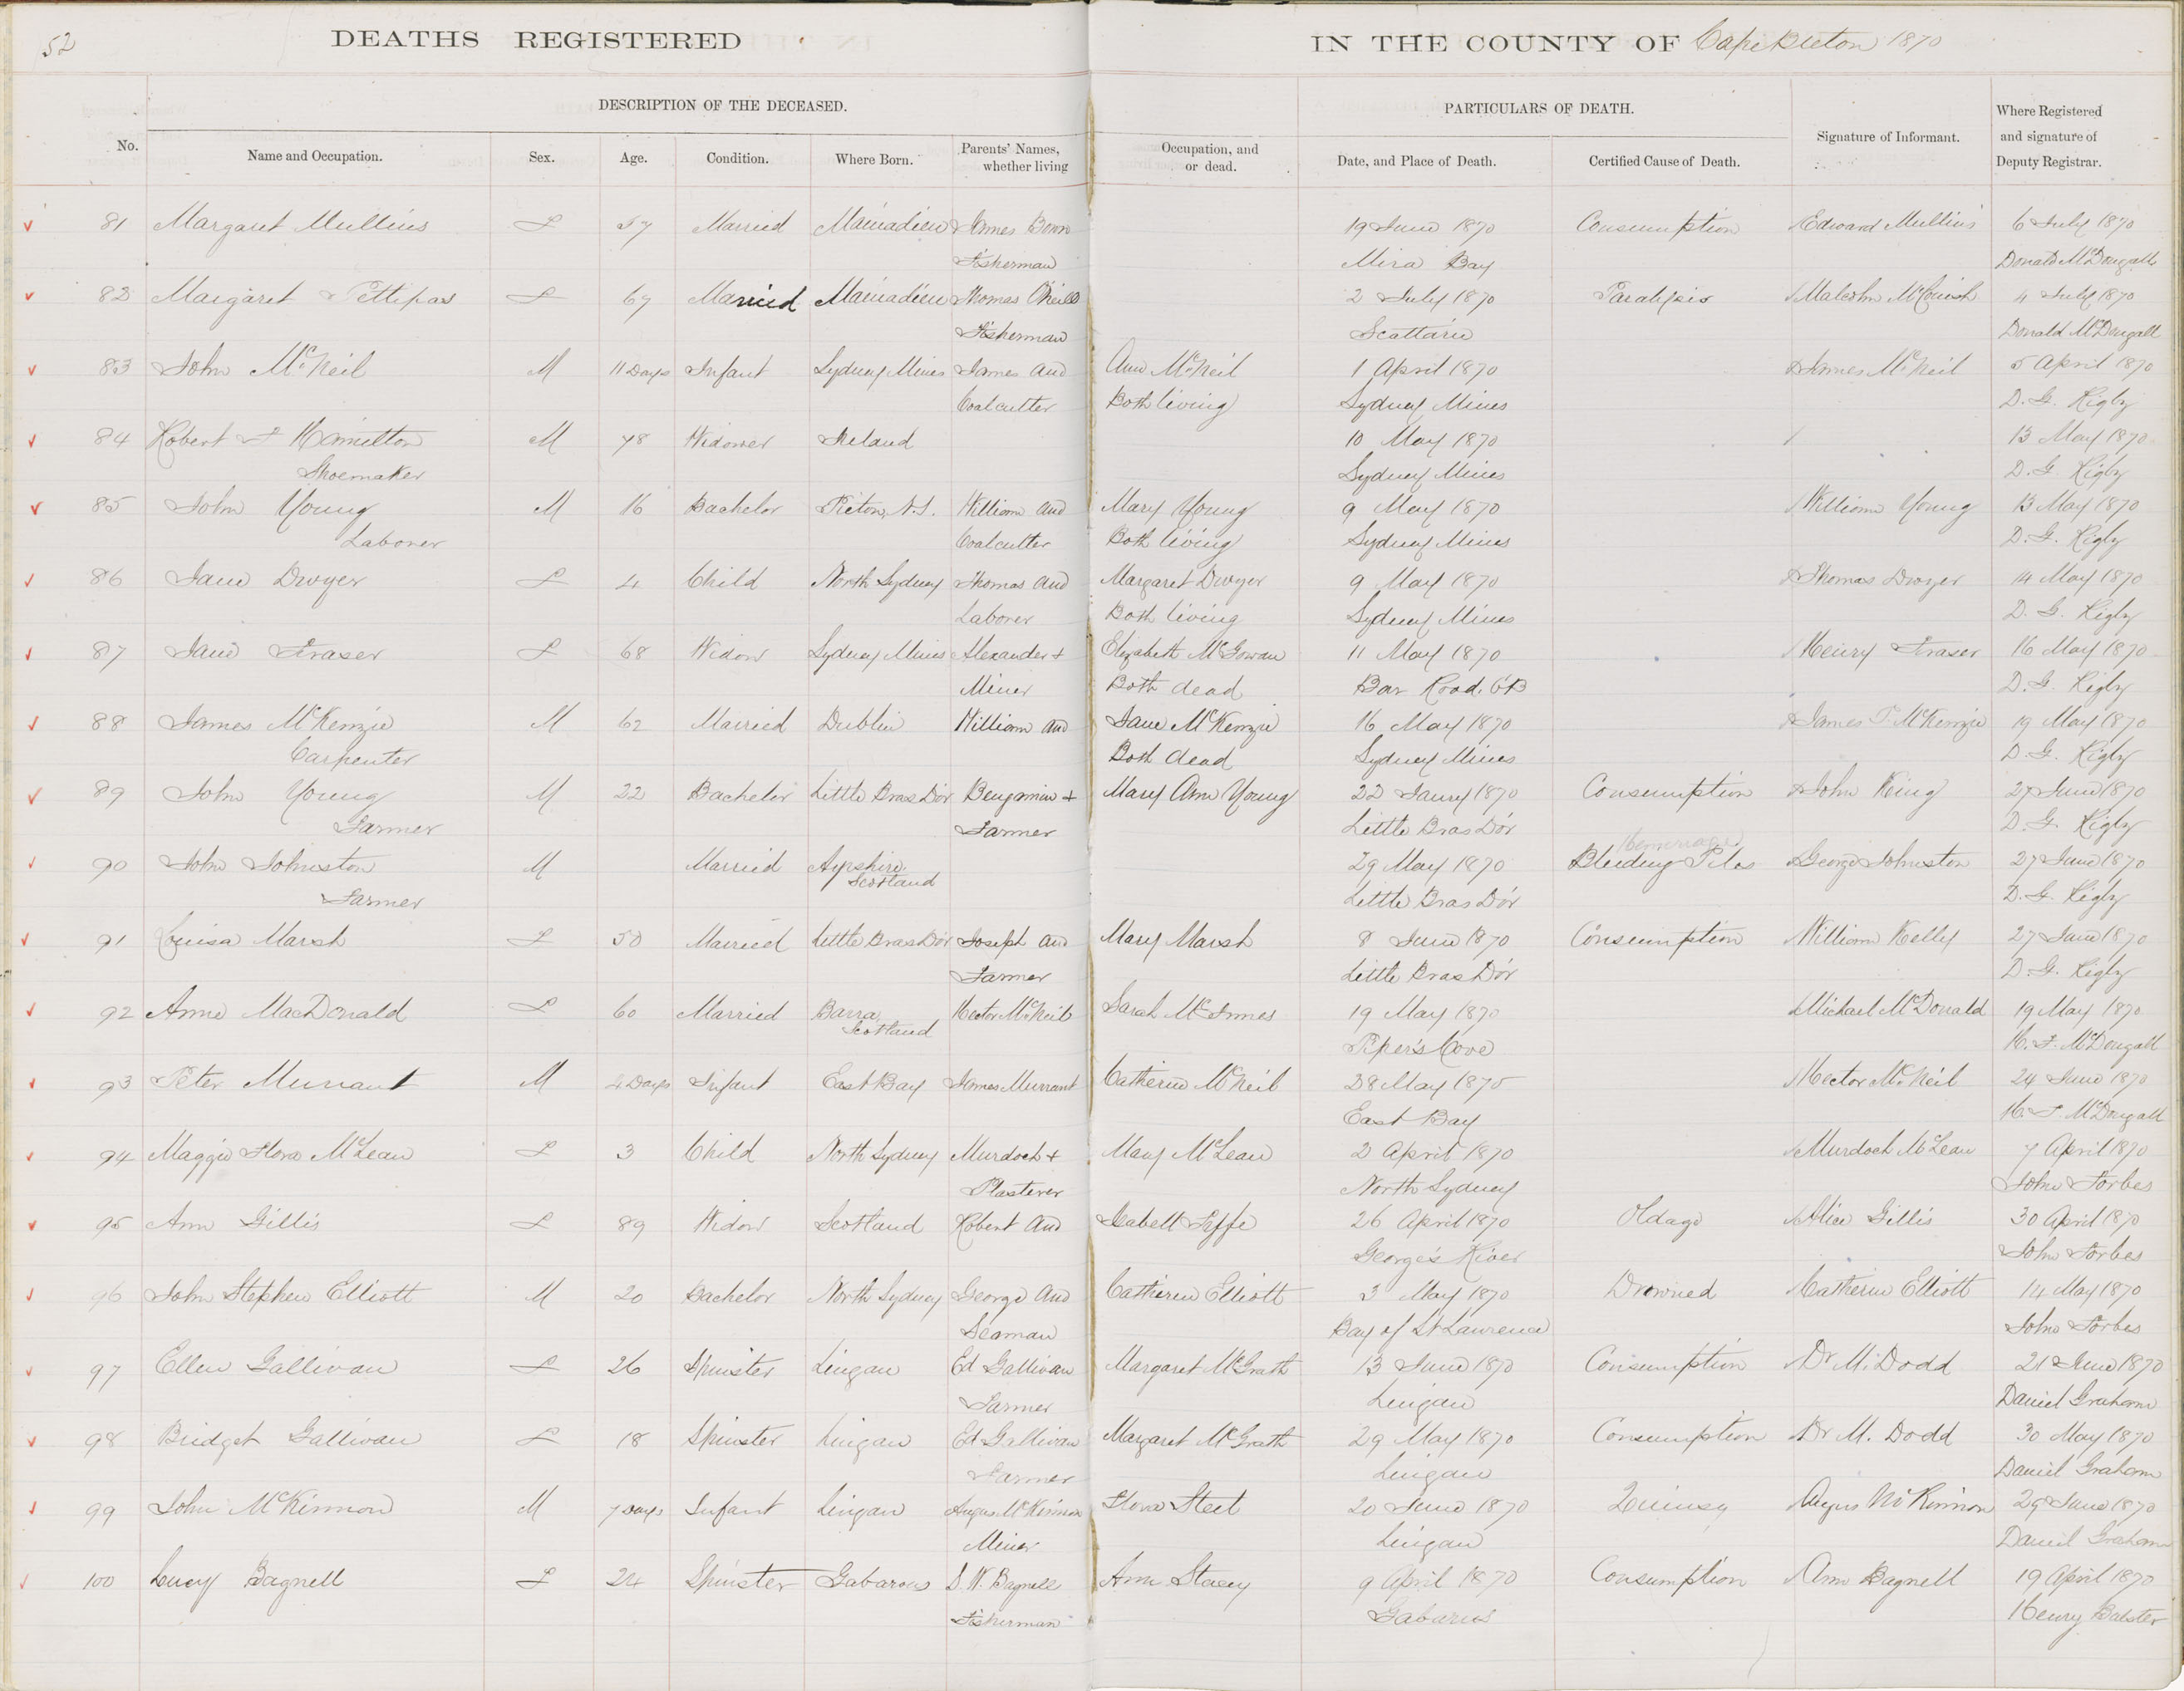 52
DEATHS REGISTERED IN THE COUNTY OF Cape Breton 1870
DESCRIPTION OF THE DECEASED. PARTICULARS OF DEATH.
No. Name and Occupation. Sex. Age. Condition. Where Born. Parents' Names, whether living Occupation, and or dead. Date, and Place of Death. Certified Cause of Death. Signature of Informant. Where Registered and signature of Deputy Registrar.
81 Margaret Mullins F 57 Married Mainadieu James Bown 19 June 1870 Consumption Edward Mullins 6 July 1870
Fisherman Mira Bay Donald McDougall
82 Margaret Pettipas F 67 Married Mainadieu Thomas O'Neill 2 July 1870 Paralysis Malcolm McCuish 4 July 1870
Fisherman Scattarie Donald McDougall
83 John McNeil M 11 Days Infant Sydney Mines James and Ann McNeil 1 April 1870 James McNeil 5 April 1870
Coalcutter Both living Sydney Mines D. G. Rigby
84 Robert Hamilton M 78 Widower Ireland 10 May 1870 13 May 1870
Shoemaker Sydney Mines D. G. Rigby
85 John Young M 16 Bachelor Picton, N.S. William and Mary Young 9 May 1870 William Young 13 May 1870
Laborer Coalcutter Both living Sydney Mines D. G. Rigby
86 Jane Dwyer F 4 Child North Sydney Thomas and Margaret Dwyer 9 May 1870 Thomas Dwyer 14 May 1870
Laborer Both living Sydney Mines D. G. Rigby
87 Jane Fraser F 68 Widow Sydney Mines Alexander + Elizabeth McGowan 11 May 1870 Henry Fraser 16 May 1870
Miner Both dead Bar Road. C B D. G. Rigby
88 James McKenzie M 62 Married Dublin William and Jane McKenzie 16 May 1870 James P. McKenzie 19 May 1870
Carpenter Both dead Sydney Mines D. G. Rigby
89 John Young M 22 Bachelor Little Bras D'or Benjamin + Mary Ann Young 22 Jany 1870 Consumption John King 27 June 1870
Farmer Farmer Little Bras D'or D. G. Rigby
Hemorrage
90 John Johnston M Married Ayrshire 29 May 1870 Bleeding Piles George Johnston 27 June 1870
Farmer Scotland Little Bras D'or D. G. Rigby
91 Louisa Marsh F 50 Married Little Bras D'or Joseph and Mary Marsh 8 June 1870 Consumption William Kelly 27 June 1870
Farmer Little Bras D'or D. G. Rigby
92 Anne MacDonald F 60 Married Barra Hector McNeil Sarah McInnes 19 May 1870 Michael McDonald 19 May 1870
Scotland Piper's Cove H. F. McDougall
93 Peter Murrant M 4 Days Infant East Bay James Murrant Catherine McNeil 28 May 1870 Hector McNeil 24 June 1870
East Bay H. F. McDougall
94 Maggie Flora McLean F 3 Child North Sydney Murdoch + Mary McLean 2 April 1870 Murdoch McLean 7 April 1870
Plasterer North Sydney John Forbes
95 Ann Gillis F 89 Widow Scotland Robert and Isabell Fyffe 26 April 1870 Old age Alice Gillis 30 April 1870
George's River John Forbes
96 John Stephen Elliott M 20 Bachelor North Sydney George and Catherine Elliott 3 May 1870 Drowned Catherine Elliott 14 May 1870
Seaman Bay of St Lawrence John Forbes
97 Ellen Gallivan F 26 Spinster Lingan Ed Gallivan Margaret McGrath 13 June 1870 Consumption Dr M. Dodd 21 June 1870
Farmer Lingan Daniel Graham
98 Bridget Gallivan F 18 Spinster Lingan Ed Gallivan Margaret McGrath 29 May 1870 Consumption Dr M. Dodd 30 May 1870
Farmer Lingan Daniel Graham
99 John McKinnon M 7 Days Infant Lingan Angus McKinnon Flora Steel 20 June 1870 Quinsy Angus McKinnon 29 June 1870
Miner Lingan Daniel Graham
100 Lucy Bagnell F 24 Spinster Gabarus S. W. Bagnell Ann Stacey 9 April 1870 Consumption Ann Bagnell 19 April 1870
Fisherman Gabarus Henry Balster